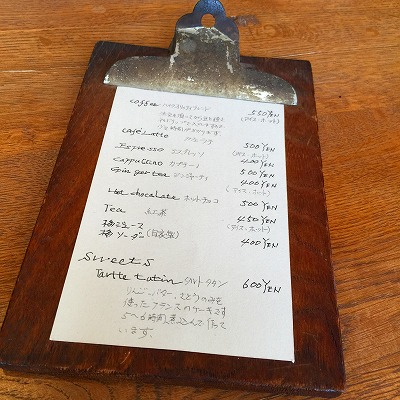 coffee ハウスオリジナルブレンド 550YEN
(アイス・ホット)
café Latte カフェラテ 500YEN
(アイス・ホット)
Espresso エスプレッソ 400YEN
cappuccino カプチーノ 500YEN
Ginger tea ジンジャーティ 400YEN
(アイス・ホット)
Hot chocolate ホットチョコ 500YEN
Tea 紅茶 450YEN
(アイス・ホット)
梅ジュース
梅ソーダー (自家製) 400YEN
Sweets
Tartte tatin タルトタタン 600YEN
りんご、バター、さとうのみを
使ったフランスのケーキです
5〜6時間煮込んで作って
います。